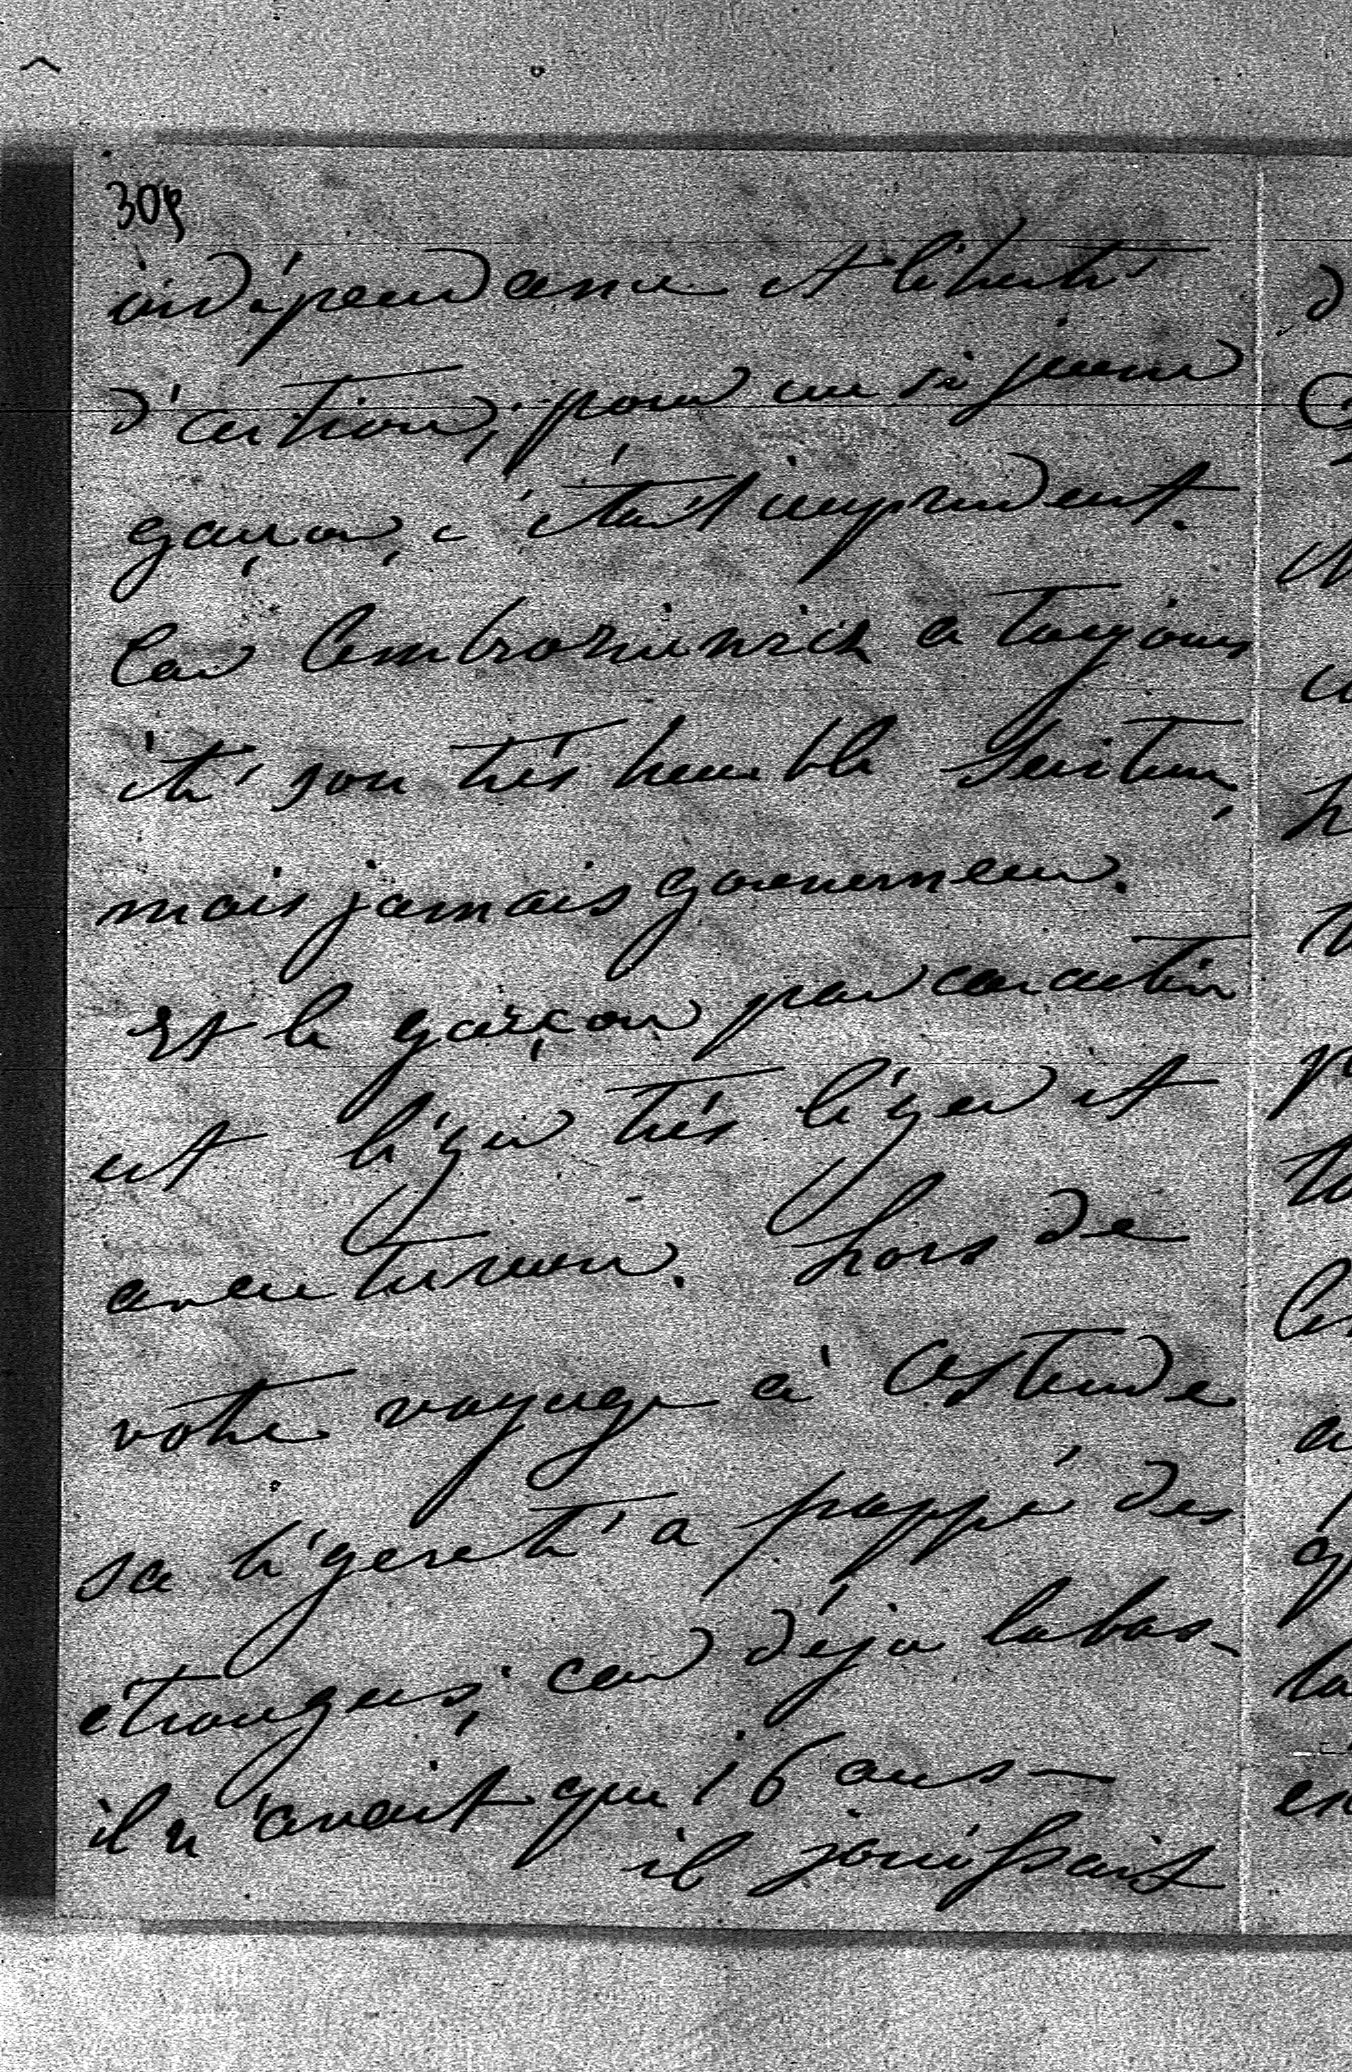 indépendance et liberté
d'action, pour un si jeune
garçon, c'était imprudent.
Car Combronievicz a toujours
été son très humble serviteur,
mais jamais gouverneur.
Et le garçon par caractère
est léger très léger et
aventureux. Lors de
votre voyage à Ostende
sa légereté a frappé des
étrangers; car déja labas-
il n'avait que 16 ans-
il jouissait